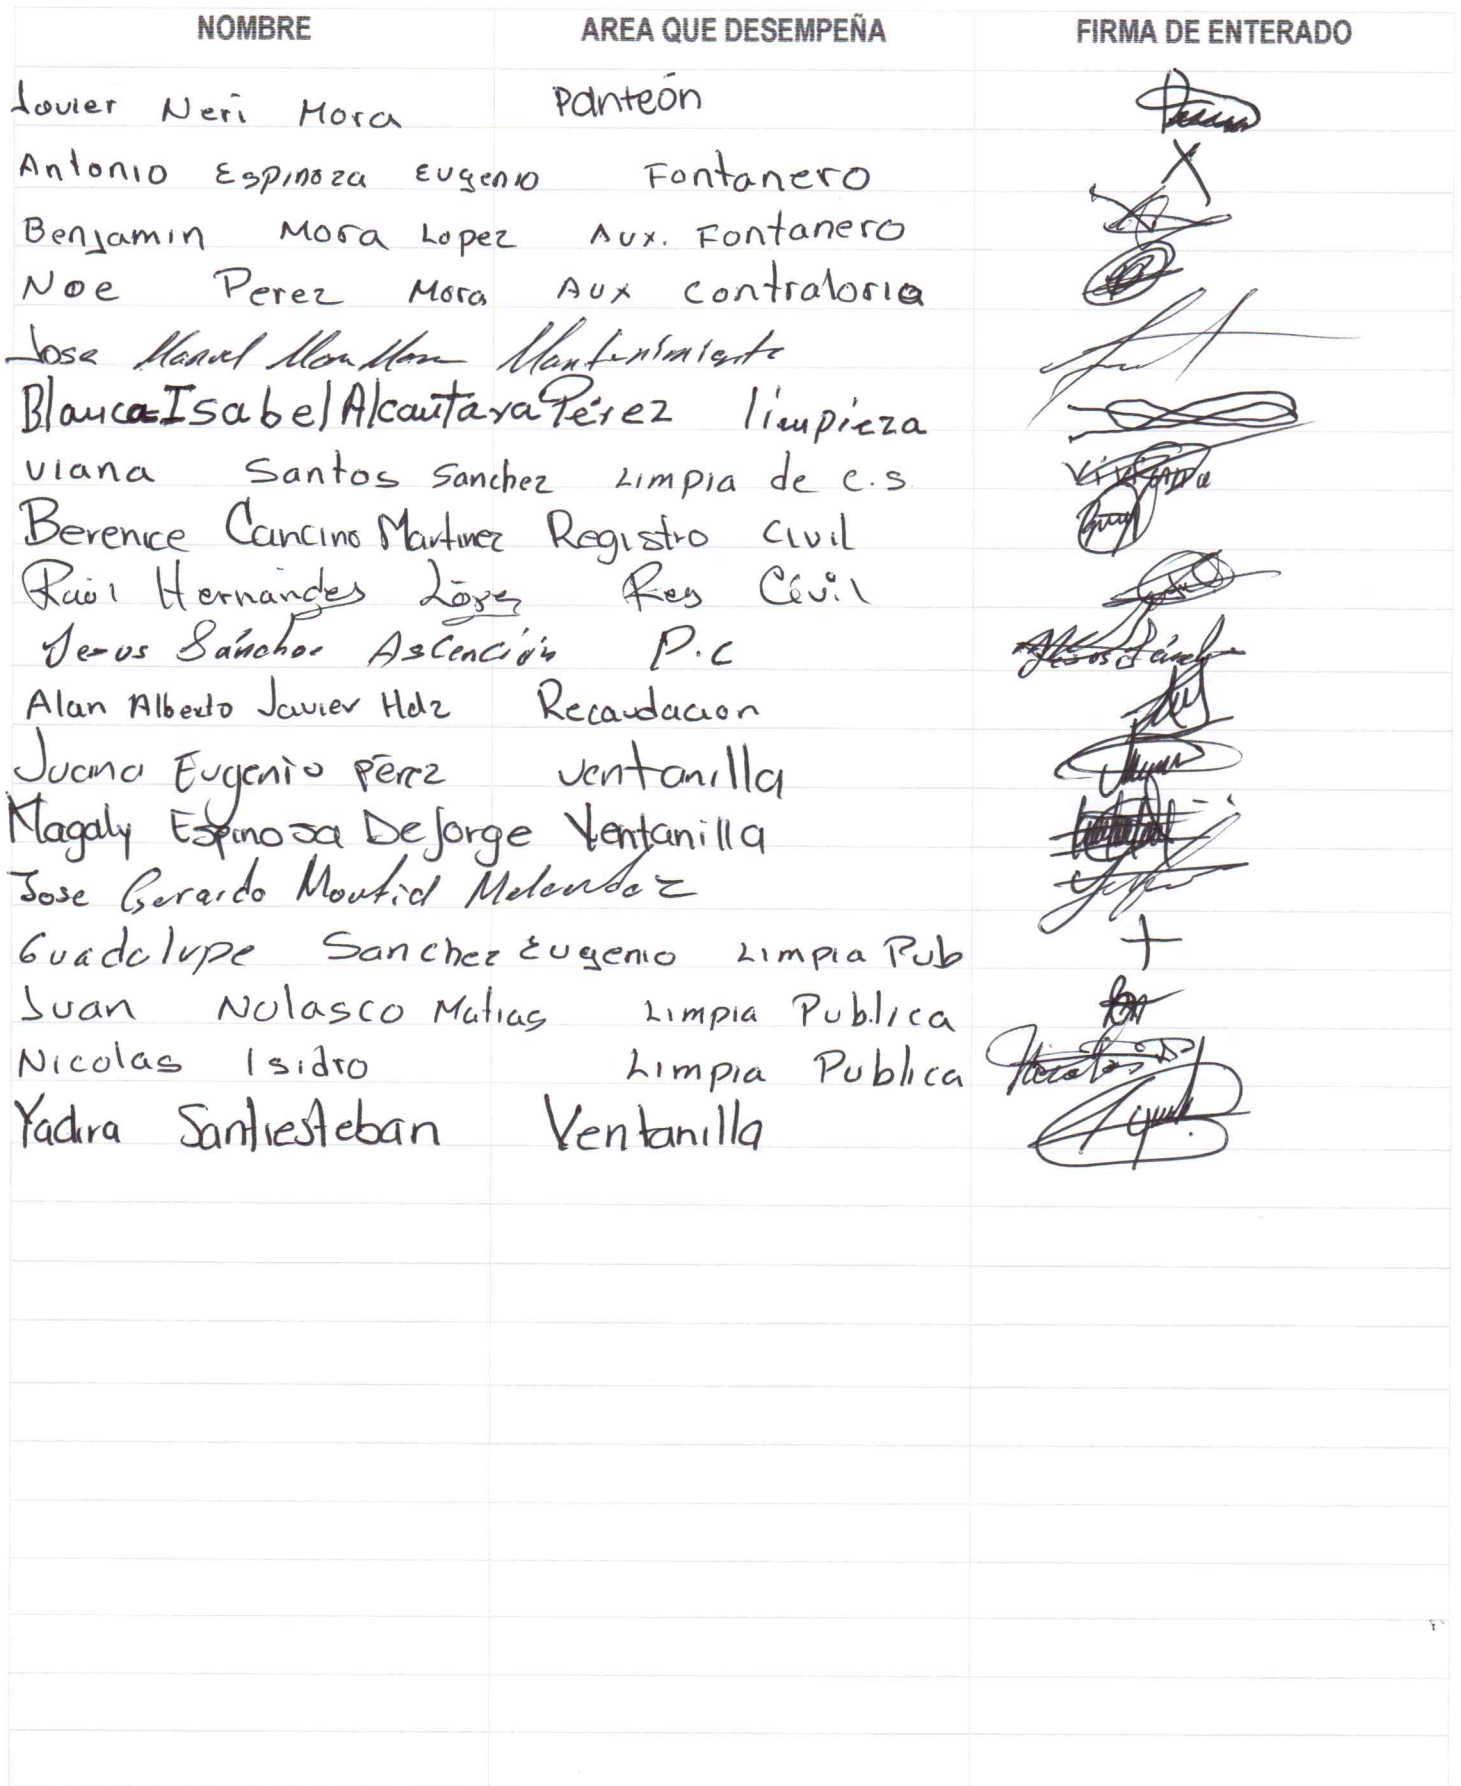 NOMBRE AREA QUE DESEMPEÑA FIRMA DE ENTERADO
Javier Neri Mora Panteón
Antonio Espinoza Eugenio Fontanero
Benjamin Mora Lopez Aux. Fontanero
Noe Perez Mora Aux Contraloria
Jose Manuel Mantenimiento
Blanca Isabel Alcantara Pérez limpieza
Viana Santos Sanchez Limpia de e.s.
Berenice Cancino Martinez Registro Civil
Raúl Hernándes López Reg Cívil
Jesus Sánchez Ascención P.C
Alan Alberto Javier Hdz Recaudacion
Juana Eugenio Pérez Ventanilla
Magaly Espinosa De Jorge Ventanilla
Jose Gerardo Melendez
Guadalupe Sanchez Eugenio Limpia Pub
Juan Nolasco Matias Limpia Publica
Nicolas Isidro Limpia Publica
Yadira Santiesteban Ventanilla